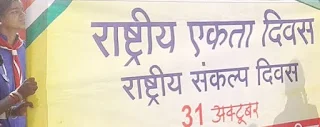 राष्ट्रीय एकता दिवस
राष्ट्रीय संकल्प दिवस
31 अक्टूबर